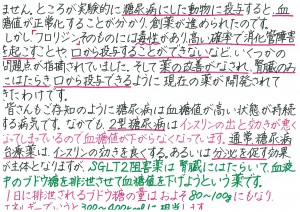 ません。ところが実験的に糖尿病にした動物に投与すると、血
糖値が正常化することが分かり、創薬が進められたのです。
しかし「フロリジン」そのものには毒性があり、高い確率で消化管障害
を起こすことや口から投与することができないなど、いくつかの
問題点が指摘されていました。そして薬の改善がなされ、腎臓のみ
にはたらき口から投与できるように現在の薬が開発されて
きたわけです。
皆さんもご存知のように糖尿病は血糖値が高い状態が持続
する病気です。なかでも2型糖尿病はインスリンの出と効きが悪く
なってしまいるので血糖値が下がらなくなっています。通常糖尿病
治療薬はインスリンの効きを良くする、あるいは分泌を促す効果
が主体となりますが、SGLT2阻害薬は腎臓にはたらいて、血液
中のブドウ糖を排泄させて血糖値を下げようという薬です。
1日に排泄されるブドウ糖の量はおよそ80〜100gにもなり、